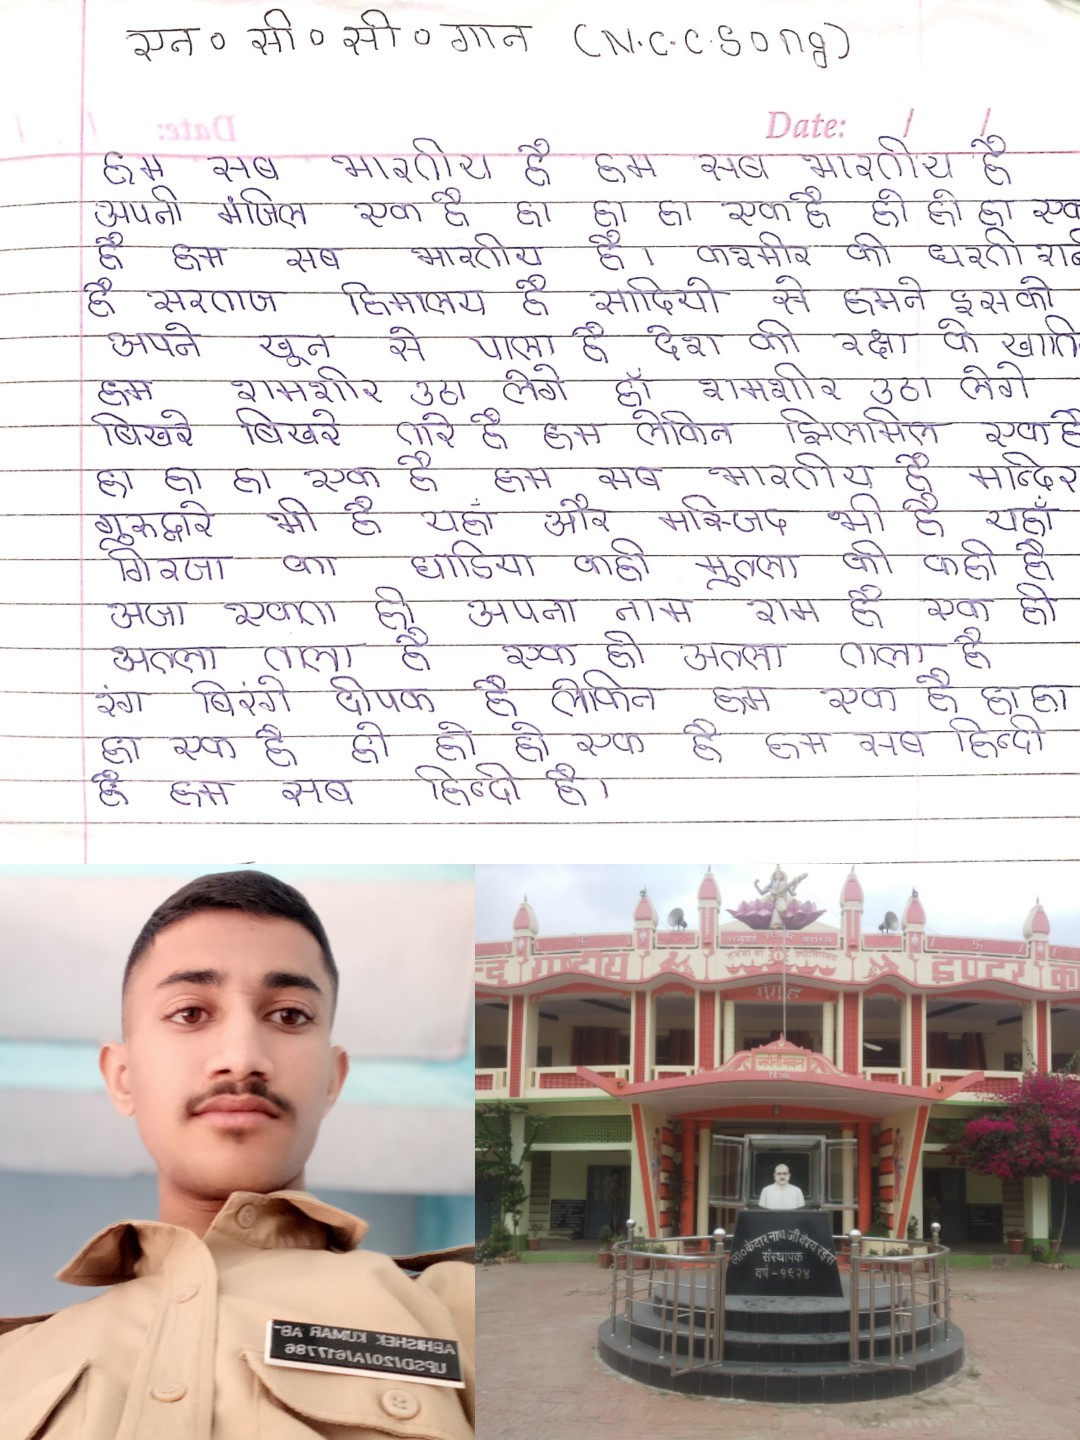 एन० सी० सी० गान (N.C.C.Song)
Date:
Date: / /
हम सब भारतीय है हम सब भारतीय है
अपनी मंजिल एक है हा हा हा एक है हो हो हा एक
है हम सब भारतीय है। कश्मीर की धरती रानी
है सरताज हिमालय है सादियो से हमने इसको
अपने खून से पाला है देश की रक्षा के खाति
हम शमशीर उठा लेगे हाँ शमशीर उठा लेगे
बिखरे बिखरे तारे है हम लेकिन झिलमिल एक है
हा हा हा एक है हम सब भारतीय है मन्दिर
गुरुद्वारे भी है यहाँ और मस्जिद भी है यहाँ
गिरजा का घाडिया कही मुल्ला की कही है
अजा एकता ही अपना नाम राम है एक ही
अतला ताला है एक ही अतला ताला है
रंग बिरंगे दीपक है लेकिन हम एक है हा हा
हा एक है हो हो हो एक है हम सब हिन्दी
है हम सब हिन्दी है।
राष्ट्रीय इण्टर का
ला० केदार नाथ जी वैश्य रईस
संस्थापक
वर्ष - १९२४
ABHISHEK KUMAR AB
UPSD/20/A/617786